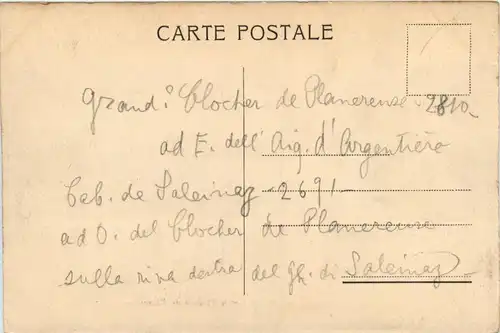 CARTE POSTALE
Grand: Clocher de Planereuse 2810-
ad E. dell' Aig. d'Argentière
Cab. de Saleinaz -2691-
ad O. del Clocher de Planereuse
sulla riva destra del Gh. di Saleinaz